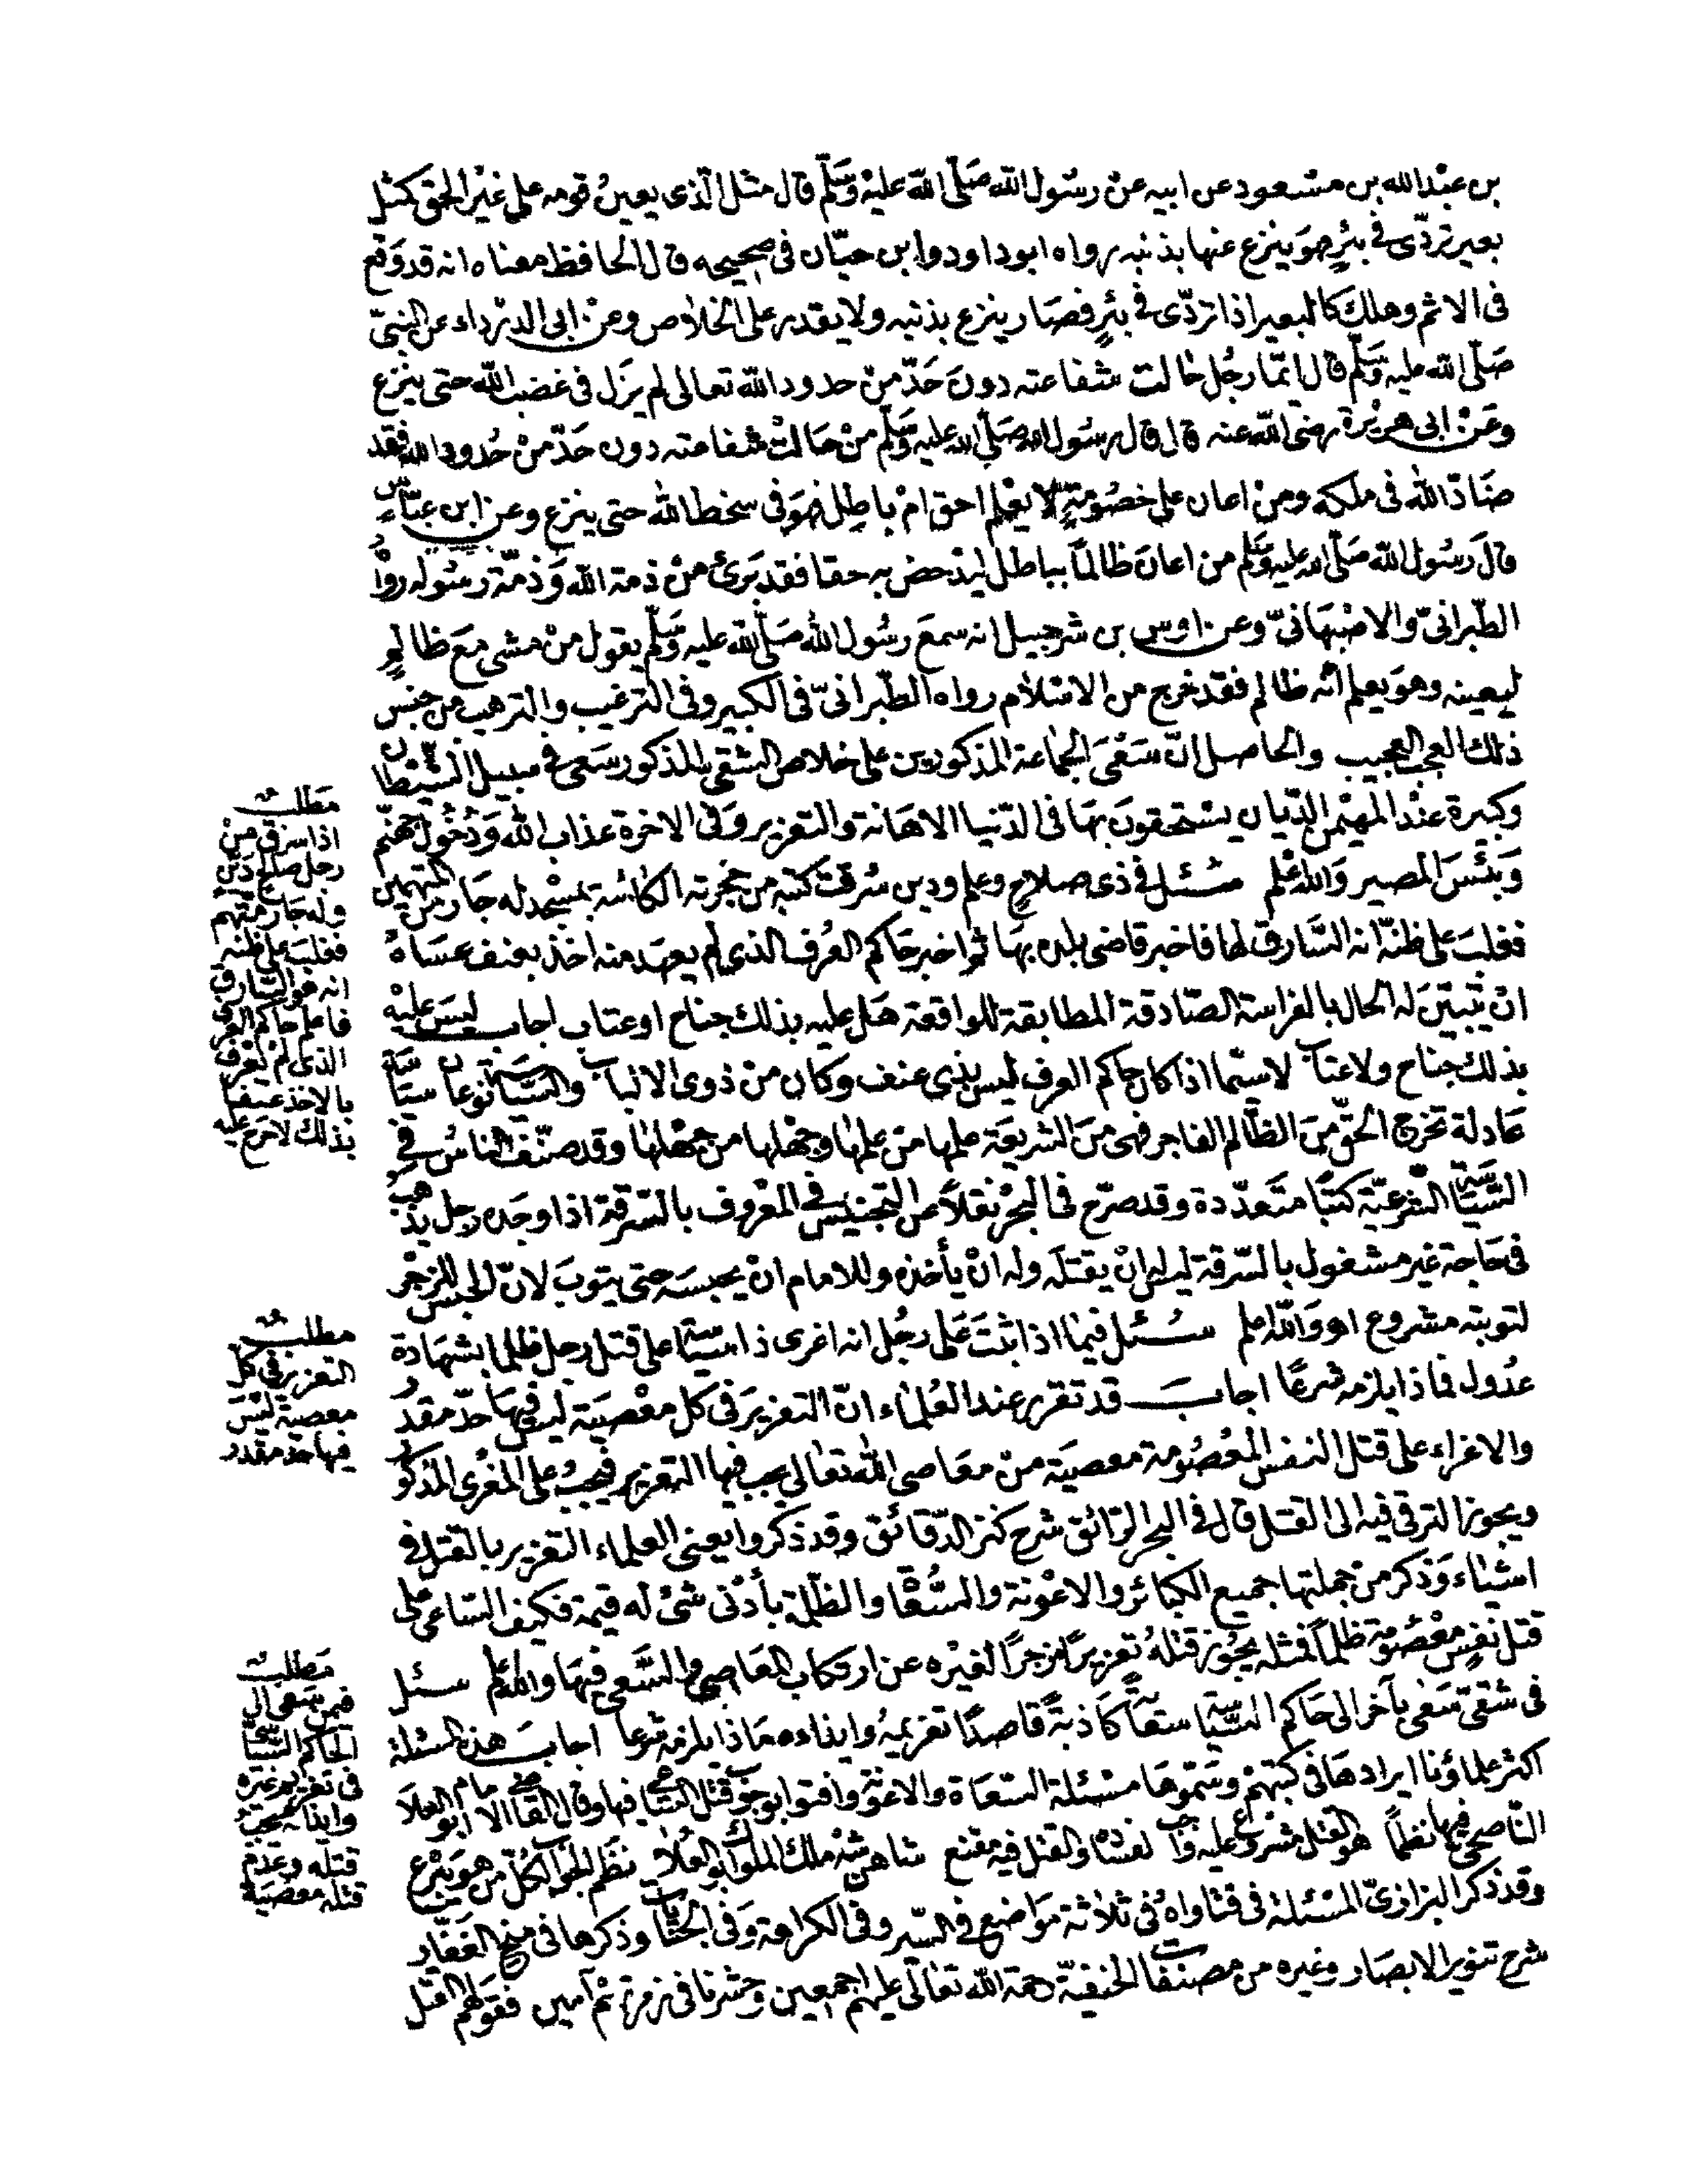 بن عبد الله بن مسعود عن ابيه عن رسول الله صلى الله عليه وسلم قال مثل الذى يعين قومه على غير الحق كمثل
بعير تردى فى بئر فهو ينزع عنها بذنبه رواه ابو داود وابن حبان فى صحيحه قال الحافظ معناه انه قد وقع
فى الاثم وهلك كالبعير اذا تردى فى بئر فصار ينزع بذنبه ولا يقدر على الخلاص وعن ابى الدرداء عن النبى
صلى الله عليه وسلم قال ايما رجل حالت شفاعته دون حد من حدود الله تعالى لم يزل فى غضب الله حتى ينزع
وعن ابى هريرة رضى الله عنه قال قال رسول الله صلى الله عليه وسلم من حالت شفاعته دون حد من حدود الله فقد
ضاد الله فى ملكه ومن اعان على خصومة لا يعلم احق ام باطل فهو فى سخط الله حتى ينزع وعن ابن عباس
قال رسول الله صلى الله عليه وسلم من اعان ظالما بباطل ليدحض به حقا فقد برئ من ذمة الله وذمة رسوله رواه
الطبرانى والاصبهانى وعن اوس بن شرحبيل انه سمع رسول الله صلى الله عليه وسلم يقول من مشى مع ظالم
ليعينه وهو يعلم انه ظالم فقد خرج من الاسلام رواه الطبرانى فى الكبير وفى الترغيب والترهيب من جنس
ذلك العجب العجيب والحاصل ان سعى الجماعة المذكورين على خلاص الشقى المذكور سعى فى سبيل الشيطان
وكبيرة عند المهيمن الديان يستحقون بها فى الدنيا الاهانة والتعزير وفى الاخرة عذاب الله ودخول جهنم
وبئس المصير والله اعلم سئل فى ذى صلاح وعلم ودين سرقت كتبه من حجرته الكائنة بمسجد له جار من المتهمين
فغلب على ظنه انه السارق لها فاخبر قاضى بلده بها ثم اخبر حاكم العرف الذى لم يعهد منه اخذ بعنف عساه
ان تبين له الحال بالفراسة الصادقة المطابقة للواقعة هل عليه بذلك جناح او عتاب اجاب ليس عليه
بذلك جناح ولا عتاب لاسيما اذا كان حاكم العرف ليس بذى عنف وكان من ذوى الالباب والسياسة نوعان سياسة
عادلة تخرج الحق من الظالم الفاجر فهى من الشريعة علمها من علمها وجهلها من جهلها وقد صنف الناس فى
السياسة الشرعية كتبا متعددة وقد صرح فى البحر نقلا عن التجنيس فى المعروف بالسرقة اذا وجده رجل يذهب
فى حاجة غير مشغول بالسرقة ليس له ان يقتله وله ان يأخذه وللامام ان يحبسه حتى يتوب لان الحبس للزجر
لتوبته مشروع اه والله اعلم سئل فيما اذا ثبت على رجل انه اغرى ذا سياسة على قتل رجل ظلما بشهادة
عدول فماذا يلزمه شرعا اجاب قد تقرر عند العلماء ان التعزير فى كل معصية ليس فيها حد مقدر
والاغراء على قتل النفس المعصومة معصية من معاصى الله تعالى يجب فيها التعزير فيجب على المغرى المذكور
ويجوز الترقى فيه الى القتل قال فى البحر الرائق شرح كنز الدقائق وقد ذكروا يعنى العلماء التعزير بالقتل فى
اشياء وذكر من جملتها جميع الكبائر والاعونة والسعاة والظلمة بأدنى شئ له قيمة فكيف الساعى على
قتل نفس معصومة ظلما فمثله يجوز قتله تعزيرا زجرا لغيره عن ارتكاب المعاصى والسعى فيها والله اعلم سئل
فى شقى سعى بآخر الى حاكم السياسة سعاية كاذبة قاصدا تغريمه وايذاءه ماذا يلزمه شرعا اجاب هذه المسئلة
اكثر علماؤنا ايرادها فى كتبهم وسموها مسئلة السعاة والاعونة وافتوا بوجوب قتل الساعى فيها وقال القاضى الامام ابو العلا
الناصحى فيها نظما هو القتل مشروع عليه واجب لفساده والقتل فيه مقنع شاهنشه ملك الملوك ابو العلا نظم الجواب لكل من هو يتبرع
وقد ذكر البزازى المسئلة فى فتاواه فى ثلاثة مواضع فى السير وفى الكراهة وفى الجنايات وذكرها فى منح الغفار
شرح تنوير الابصار وغيره من مصنفات الحنفية رحمة الله تعالى عليهم اجمعين وحشرنا فى زمرتهم آمين فقولهم القتل
مطلب
اذا سرق من
رجل صالح دين
وله جار متهم
فغلب على ظنه
انه هو السارق
فاعلم حاكم العرف
الذى لم يعرف
بالاخذ عنفا
بذلك لا حرج عليه
مطلب
التعزير فى كل
معصية ليس
فيها حد مقدر
مطلب
فيمن سعى الى
الحاكم السياسى
فى تغريم غيره
وايذائه يجب
قتله وعدم
قتله معصية